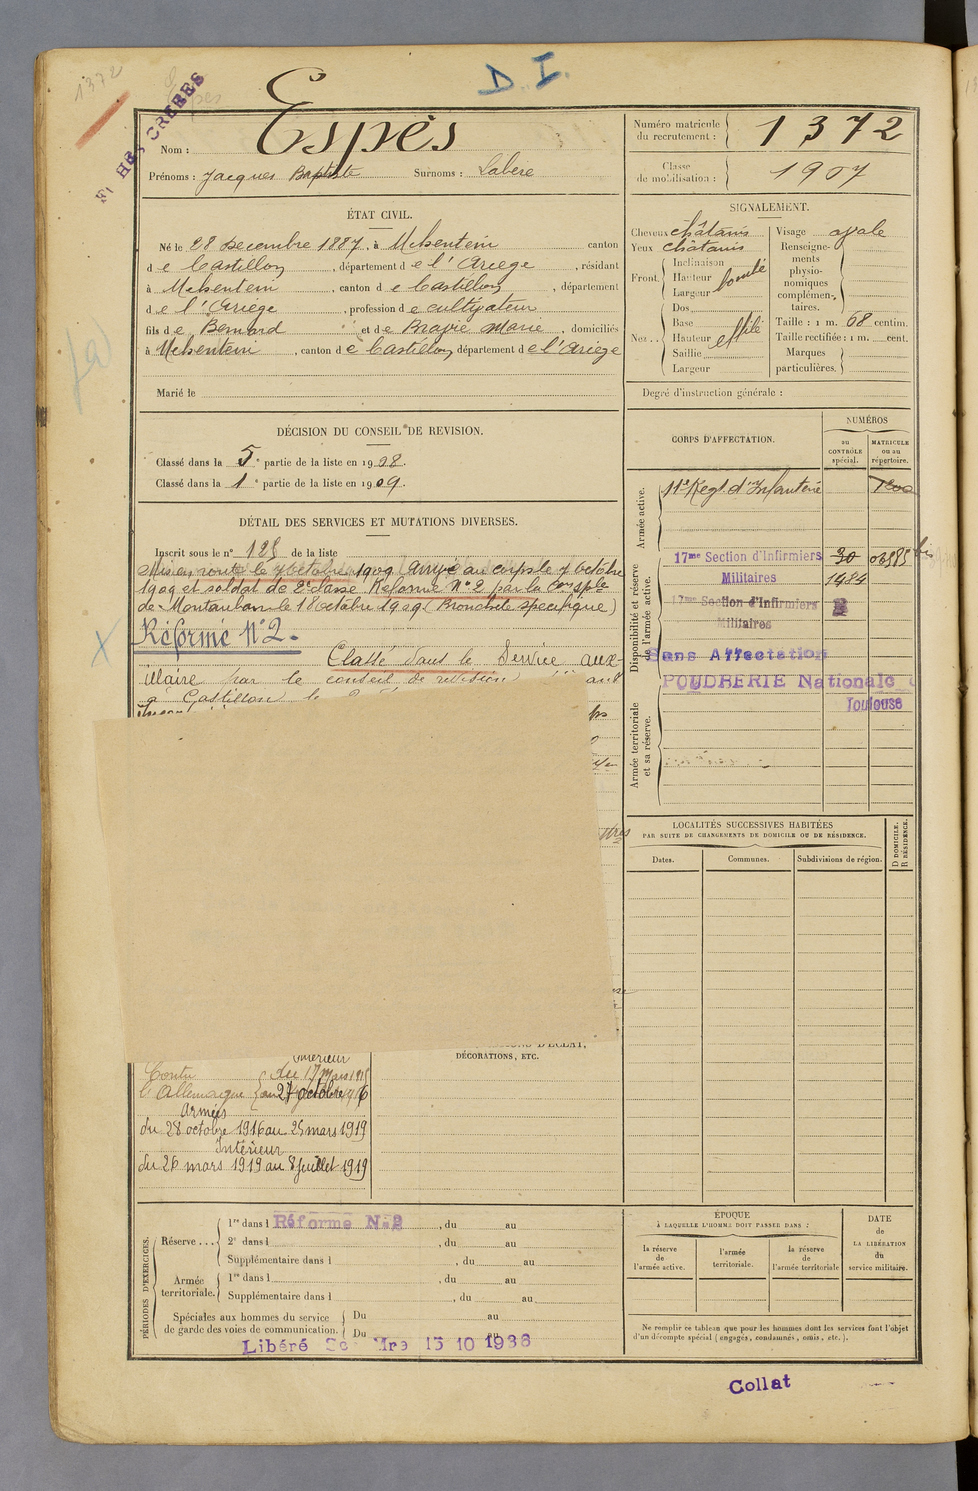 1372
D. I.
FICHES CREEES
Nom : Espès
Prénoms : Jacques Baptiste Surnoms : Labère
Numéro matricule du recrutement : 1372
Classe de mobilisation : 1907
ÉTAT CIVIL.
Né le 28 Decembre 1887, à Uchentein canton
de Castillon, département de l'Ariège, résidant
à Uchentein, canton de Castillon, département
de l'Ariège, profession de cultivateur
fils de Bernard et de Marie, domiciliés
à Uchentein, canton de Castillon, département de l'Ariège
Marié le
SIGNALEMENT.
Cheveux châtains
Yeux châtains
Front
Inclinaison
Hauteur
Largeur
Nez
Dos
Base
Hauteur effilé
Saillie
Largeur
Visage ovale
Renseignements physionomiques complémentaires.
Taille : 1 m. 68 centim.
Taille rectifiée : 1 m. cent.
Marques particulières.
Degré d'instruction générale :
DÉCISION DU CONSEIL DE REVISION.
Classé dans la 5e partie de la liste en 1908.
Classé dans la 1e partie de la liste en 1909.
DÉTAIL DES SERVICES ET MUTATIONS DIVERSES.
Inscrit sous le n° 125 de la liste
Mis en route le 7 octobre 1909 arrivé au corps le 7 octobre
1909 et soldat de 2e classe Réformé N° 2 par la Con Sple
de Montauban le 18 octobre 1909 (Bronchite spécifique)
Réformé N° 2.
Classé dans le Service aux-
iliaire par le conseil de révision
à Castillon le
CORPS D'AFFECTATION.
NUMÉROS
au CONTRÔLE spécial.
MATRICULE ou au répertoire.
Armée active.
11e Regt d'Infanterie
Disponibilité et réserve de l'armée active.
17me Section d'Infirmiers 30 03985 bis
Militaires 1984
17me Section d'Infirmiers
Militaires
Sans Affectation
POUDRERIE Nationale
Toulouse
Armée territoriale et sa réserve.
LOCALITÉS SUCCESSIVES HABITÉES
PAR SUITE DE CHANGEMENTS DE DOMICILE OU DE RÉSIDENCE.
Dates.
Communes.
Subdivisions de région.
D DOMICILE.
R RÉSIDENCE.
D'ÉCLAT,
DÉCORATIONS, ETC.
Intérieur
Contre l'Allemagne
du 17 mars 1915
au 27 octobre 1916
Armées
du 28 octobre 1916 au 25 mars 1919
Intérieur
du 26 mars 1919 au 8 juillet 1919
PÉRIODES D'EXERCICES.
Réserve ...
1re dans l Réformé N°2, du au
2e dans l, du au
Supplémentaire dans l, du au
Armée territoriale.
1re dans l, du au
Supplémentaire dans l, du au
Spéciales aux hommes du service de garde des voies de communication.
Du au
Du au
Libéré Mre 15 10 1936
ÉPOQUE
À LAQUELLE L'HOMME DOIT PASSER DANS :
la réserve de l'armée active.
l'armée territoriale.
la réserve de l'armée territoriale
DATE de LA LIBÉRATION du service militaire.
Ne remplir ce tableau que pour les hommes dont les services font l'objet
d'un décompte spécial (engagés, condamnés, omis, etc.).
Collat